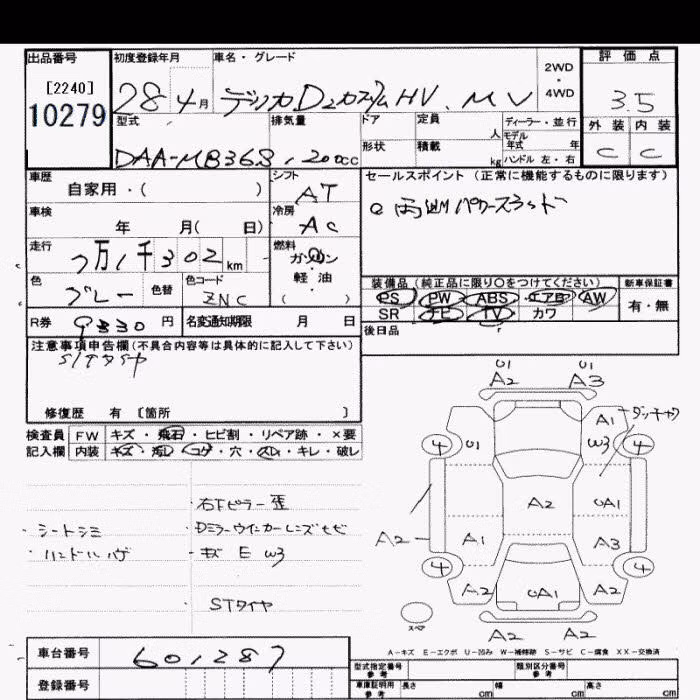 出品番号 初度登録年月 車名・グレード 2WD・4WD 評価点
[2240]
10279 28 4月 デリカD2カスタムHV.MV 3.5
型式 排気量 ドア 定員 人 ディーラー・並行 外装 内装
モデル年式 年
DAA-MB36S 1200cc 形状 積載 kg ハンドル 左・右 C C
車歴 シフト セールスポイント (正常に機能するものに限ります)
自家用・( ) AT
車検 冷房 両側パワースライドドア
年 月( 日) AC
走行 燃料
7万1千302km ガソリン・軽油
色 色替 色コード ( ) 装備品 (純正品に限り○をつけてください) 新車保証書
グレー ZNC PS PW ABS エアB AW 有・無
R券 9330円 名変通知期限 月 日 SR ナビ TV カワ
後日品
注意事項申告欄(不具合内容等は具体的に記入して下さい)
STタイヤ
修復歴 有 〔箇所 〕
検査員 FW キズ・飛石・ヒビ割・リペア跡・×要
記入欄 内装 キズ・汚れ・コゲ・穴・スレ・キレ・破レ
U1 U1
A2 A3
A1 ダッチャク
4 U1 W3 4
A2 UA1
A2 A1 A3
4 4
A2 UA1 A2
A2 A2
スペア
・右下ピラー歪
・シートシミ ・Dミラーウインカーレンズヒビ
・ハンドルハゲ ・キズ E W3
・STタイヤ
A-キズ E-エクボ U-凹み W-補修跡 S-サビ C-腐食 XX-交換済
車台番号 601287
登録番号
型式指定番号 参考 類別区分番号 参考
車庫証明用 参考 長さ cm 幅 cm 高さ cm